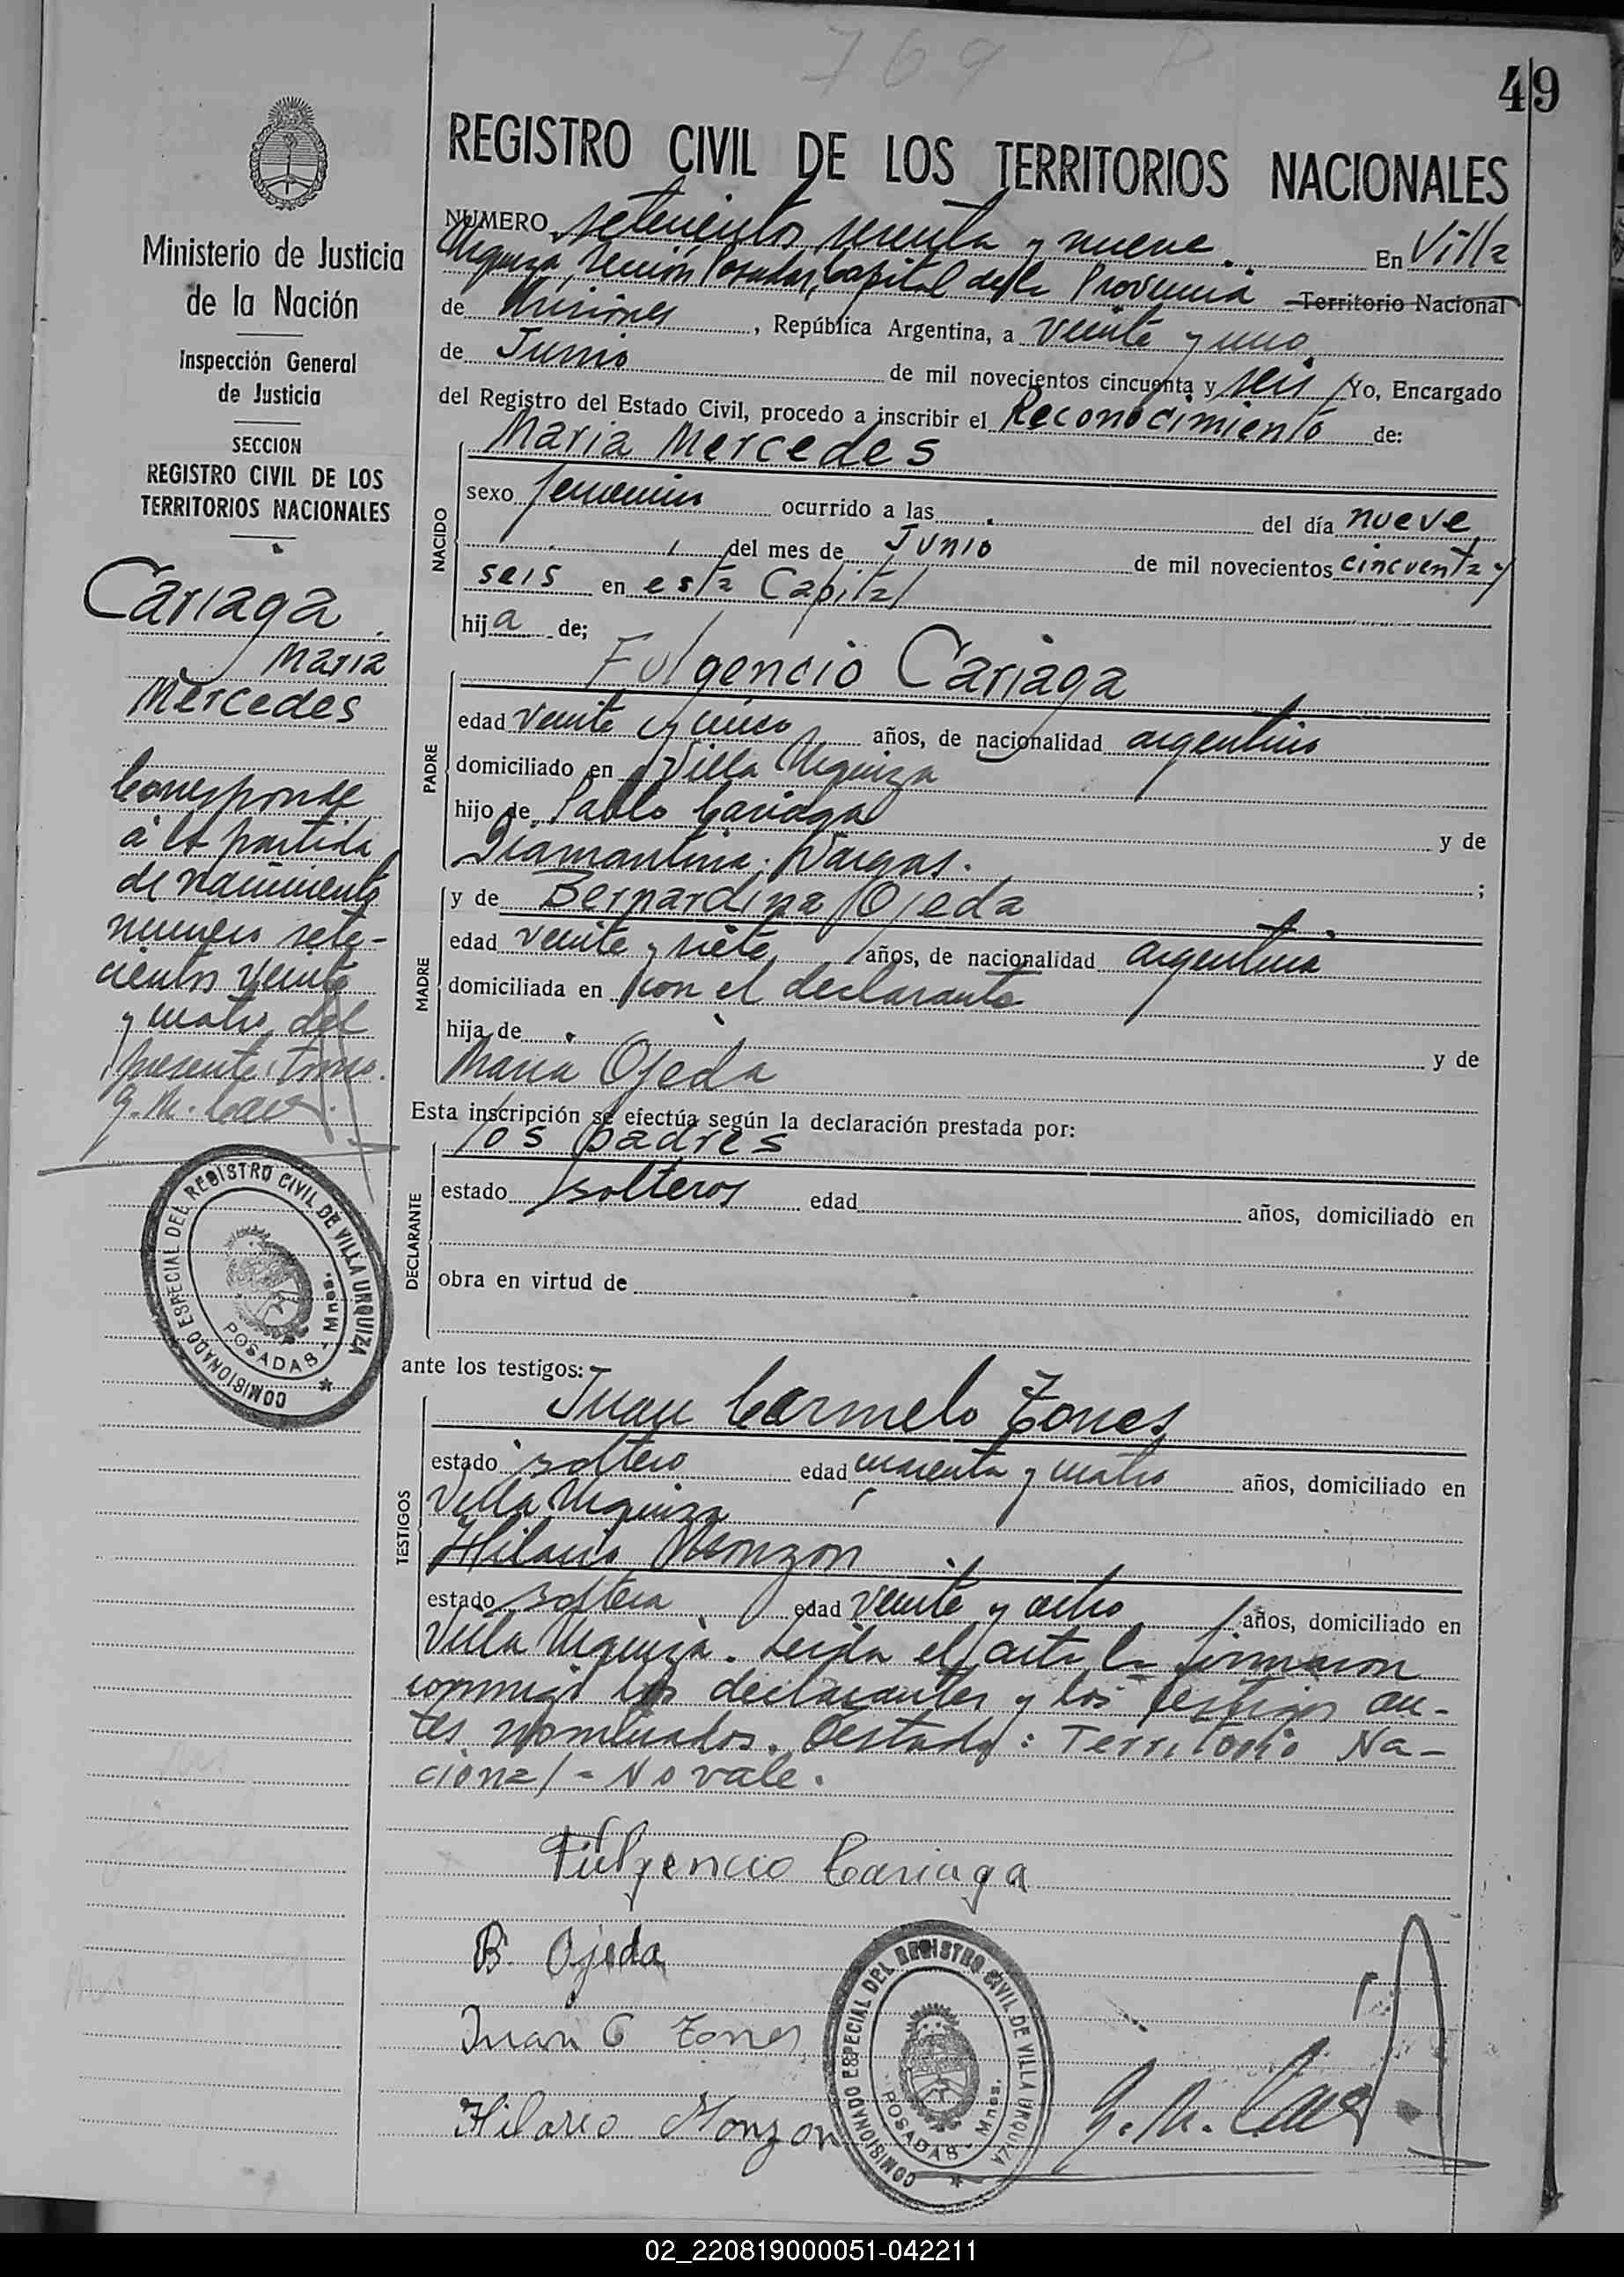 769
49
REGISTRO CIVIL DE LOS TERRITORIOS NACIONALES
Ministerio de Justicia
de la Nación
Inspección General
de Justicia
SECCION
REGISTRO CIVIL DE LOS
TERRITORIOS NACIONALES
Cariaga
Maria
Mercedes
Corresponde
a la partida
de nacimiento
numero sete-
cientos veinte
y cuatro del
presente tomo.
COMISIONADO ESPECIAL DEL REGISTRO CIVIL DE VILLA URQUIZA
POSADAS - Mnes.
NUMERO setecientos sesenta y nueve. En Villa
Urquiza, Sección Posadas, Capital de la Provincia Territorio Nacional
de Misiones, República Argentina, a veinte y uno
de Junio de mil novecientos cincuenta y seis Yo, Encargado
del Registro del Estado Civil, procedo a inscribir el Reconocimiento de:
NACIDO
Maria Mercedes
sexo femenino ocurrido a las . del día nueve
del mes de Junio de mil novecientos cincuenta y
seis en esta Capital
hija de;
PADRE
Fulgencio Cariaga
edad veinte y cinco años, de nacionalidad argentino
domiciliado en Villa Urquiza
hijo de Pablo Cariaga y de
Diamantina Vargas. ;
MADRE
y de Bernardina Ojeda
edad veinte y siete años, de nacionalidad argentina
domiciliada en con el declarante
hija de . y de
Maria Ojeda
Esta inscripción se efectúa según la declaración prestada por:
DECLARANTE
los padres
estado solteros edad años, domiciliado en
obra en virtud de
ante los testigos:
TESTIGOS
Juan Carmelo Torres
estado soltero edad cuarenta y cuatro años, domiciliado en
Villa Urquiza
Hilario Monzon
estado soltero edad veinte y ocho años, domiciliado en
Villa Urquiza. Leida el acta la firmaron
conmigo los declarantes y los testigos an-
tes nombrados. Testado: Territorio Na-
cional - No vale.
Fulgencio Cariaga
B. Ojeda
Juan C Torres
Hilario Monzon
COMISIONADO ESPECIAL DEL REGISTRO CIVIL DE VILLA URQUIZA
POSADAS - Mnes.
02_220819000051-042211